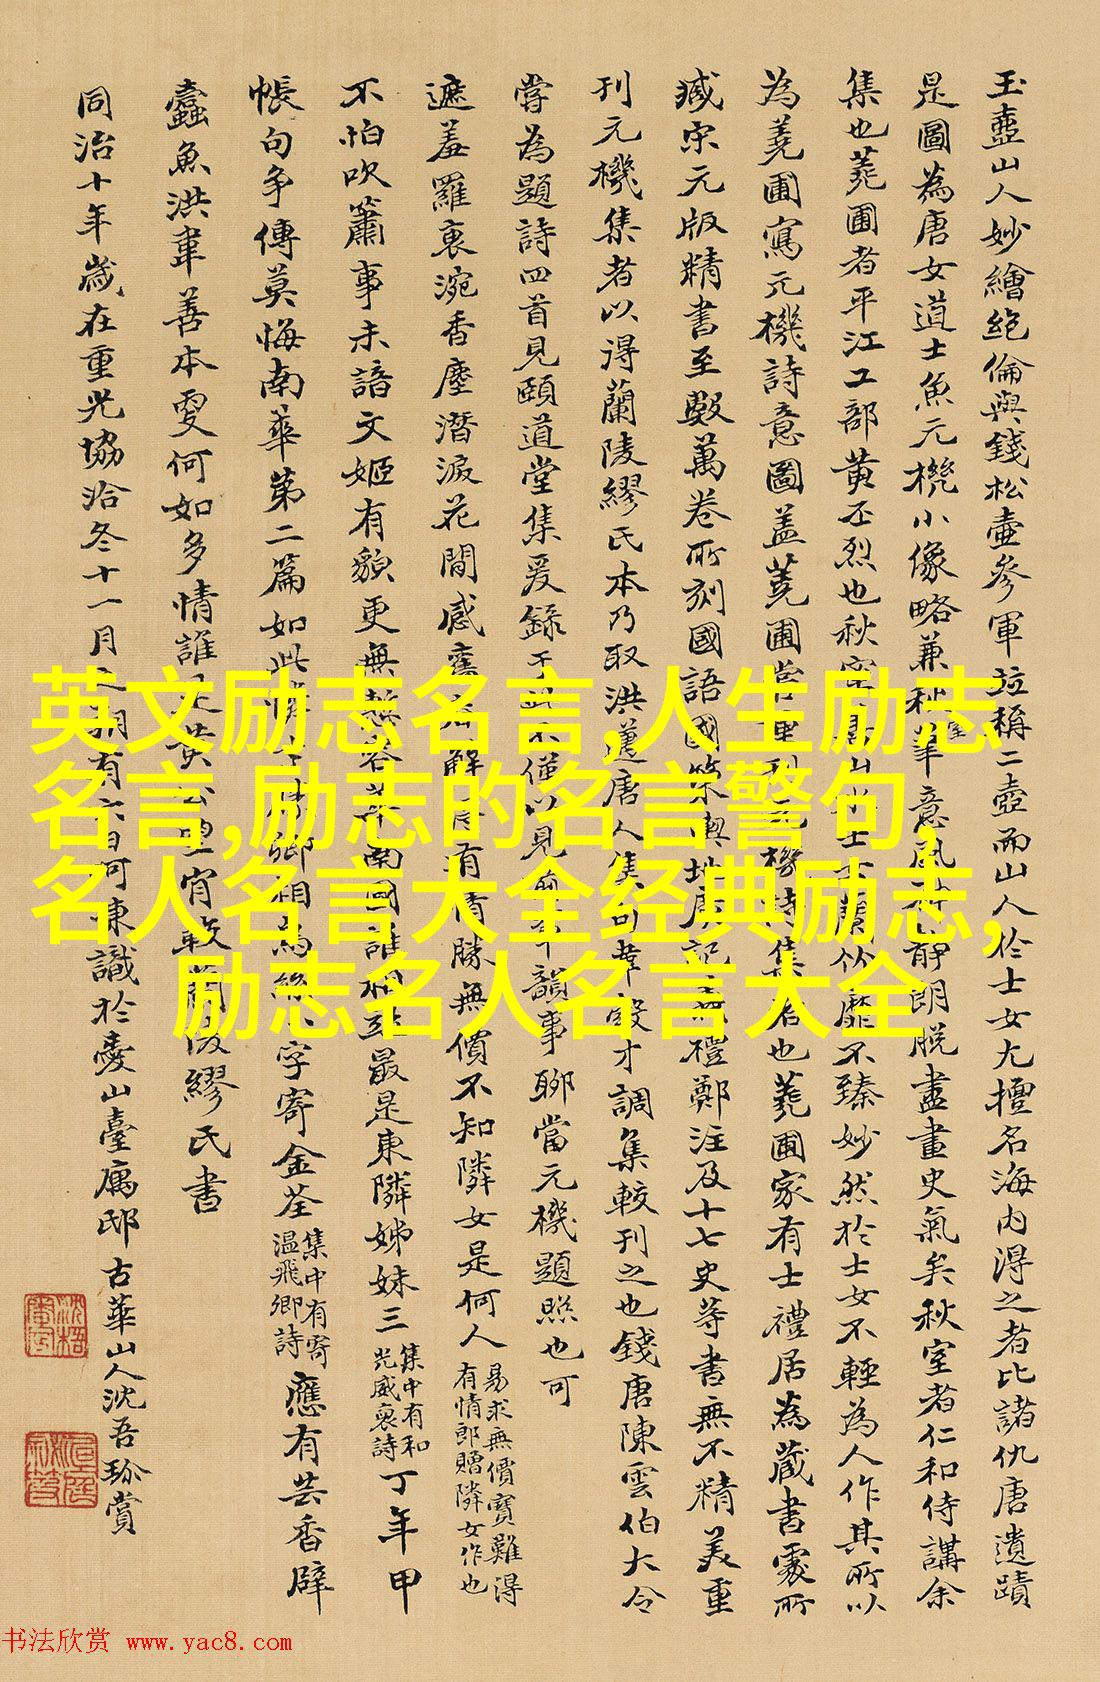 玉壺山人妙繪絕倫與錢松壺參軍竝稱二壺而山人於士女尤擅名海內得之者比諸仇唐遺蹟
是圖為唐女道士魚元機小像略兼秋室筆意風神靜朗脫盡畫史氣矣秋室者仁和侍講余
集也蕘圃者平江工部黃丕烈也秋室蘭竹靡不臻妙然於士女不輕為人作其所以
為蕘圃寫元機詩意圖蓋蕘圃嘗重刊元機詩集者也蕘圃家有士禮居為藏書處所
臧宋元版精書至數萬卷所刻國語國策輿地廣記周禮鄭注及十七史等書無不精美重
刊元機集者以得蘭陵繆氏本乃取洪邁唐人集句韋縠才調集較刊之也錢唐陳雲伯大令
嘗為題詩四首見頤道堂集爰錄于此不僅以見前年韻事聊當元機題照也可
遮羞羅裒涴香塵潛淚花間感舊解有情勝無價不知隣女是何人
易求無價寶難得
有情郎贈隣女作也
不怕吹簫事未諳文姬有貌更無慙南國誰相竝最是東隣姊妹三
集中有和
光威裒詩
丁年甲
帳句爭傳莫悔南華第二篇如此卿相為絲字寄金荃
集中有寄
温飛卿詩
應有芸香辟
蠹魚洪韋善本更何如多情誰是黃公望宵較蘭陵繆氏書
同治十年歲在重光協洽冬十一月之朔有六日河東識於臺山臺寓邸古華山人沈吾珍賞
英文励志名言,人生励志
名言,励志的名言警句,
名人名言大全经典励志,
励志名人名言大全
书法欣赏 www.yac8.com